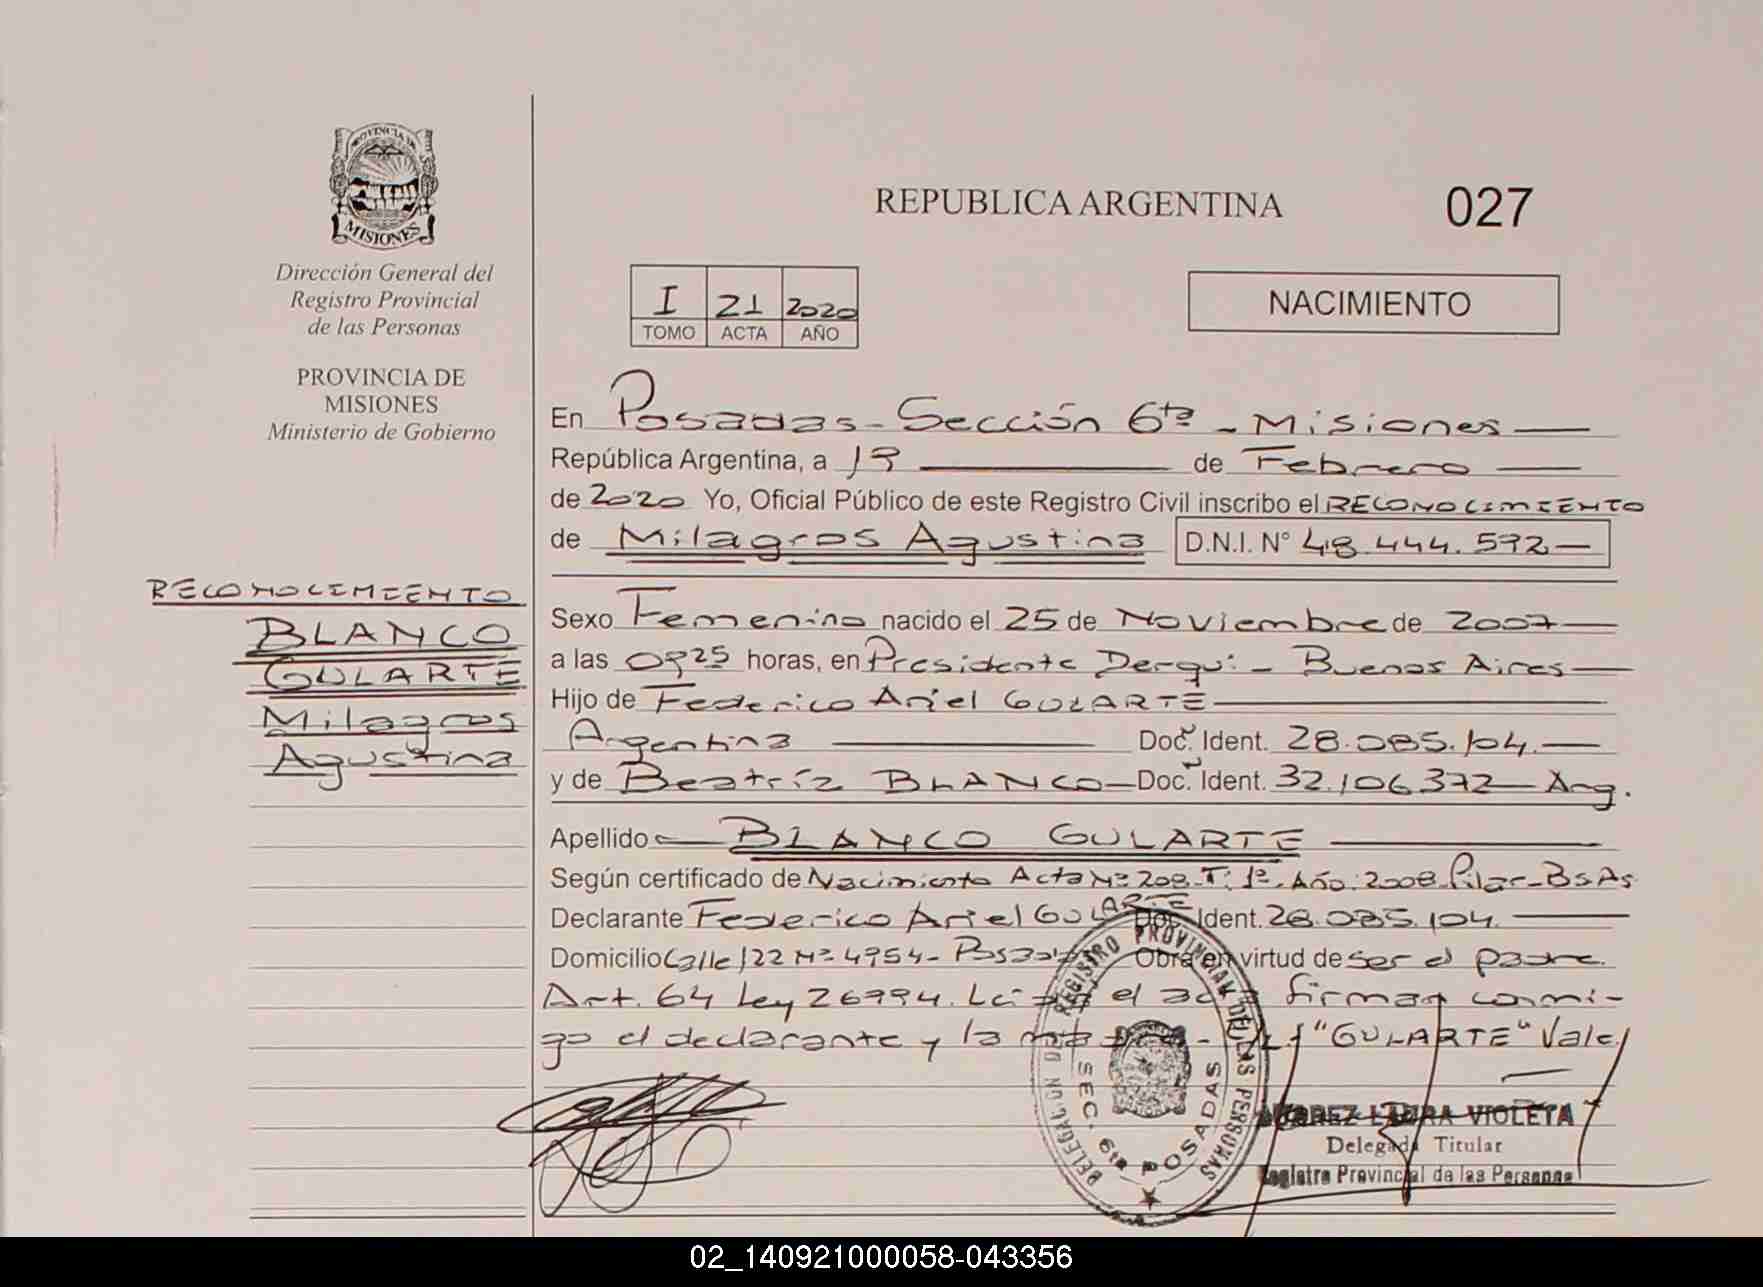 PROVINCIA DE
MISIONES
Dirección General del
Registro Provincial
de las Personas
PROVINCIA DE
MISIONES
Ministerio de Gobierno
REPUBLICA ARGENTINA
027
I 21 2020
TOMO ACTA AÑO
NACIMIENTO
En Posadas - Sección 6ta - Misiones
República Argentina, a 19 de Febrero
de 2020 Yo, Oficial Público de este Registro Civil inscribo el RECONOCIMIENTO
de Milagros Agustina D.N.I. N° 48.444.592
RECONOCIMIENTO
BLANCO
GULARTE
Milagros
Agustina
Sexo Femenino nacido el 25 de Noviembre de 2007
a las 0925 horas, en Presidente Derqui - Buenos Aires
Hijo de Federico Ariel GULARTE
Argentina Doc. Ident. 28.085.104.
y de Beatríz BLANCO Doc. Ident. 32.106.372 Arg.
Apellido BLANCO GULARTE
Según certificado de Nacimiento Acta Nº 208 T: 1º. Año: 2008 Pilar - BsAs
Declarante Federico Ariel GULARTE Doc. Ident. 28.085.104.
Domicilio Calle 122 Nº 4954 - Posadas Obra en virtud de ser el padre.
Art. 64 Ley 26994. el acta firman conmi-
go el declarante y la "GULARTE" Vale
DELEGACION DEL REGISTRO PROVINCIAL DE LAS PERSONAS
SEC. 6ta POSADAS
LAURA VIOLETA
Delegada Titular
Registro Provincial de las Personas
02_140921000058-043356